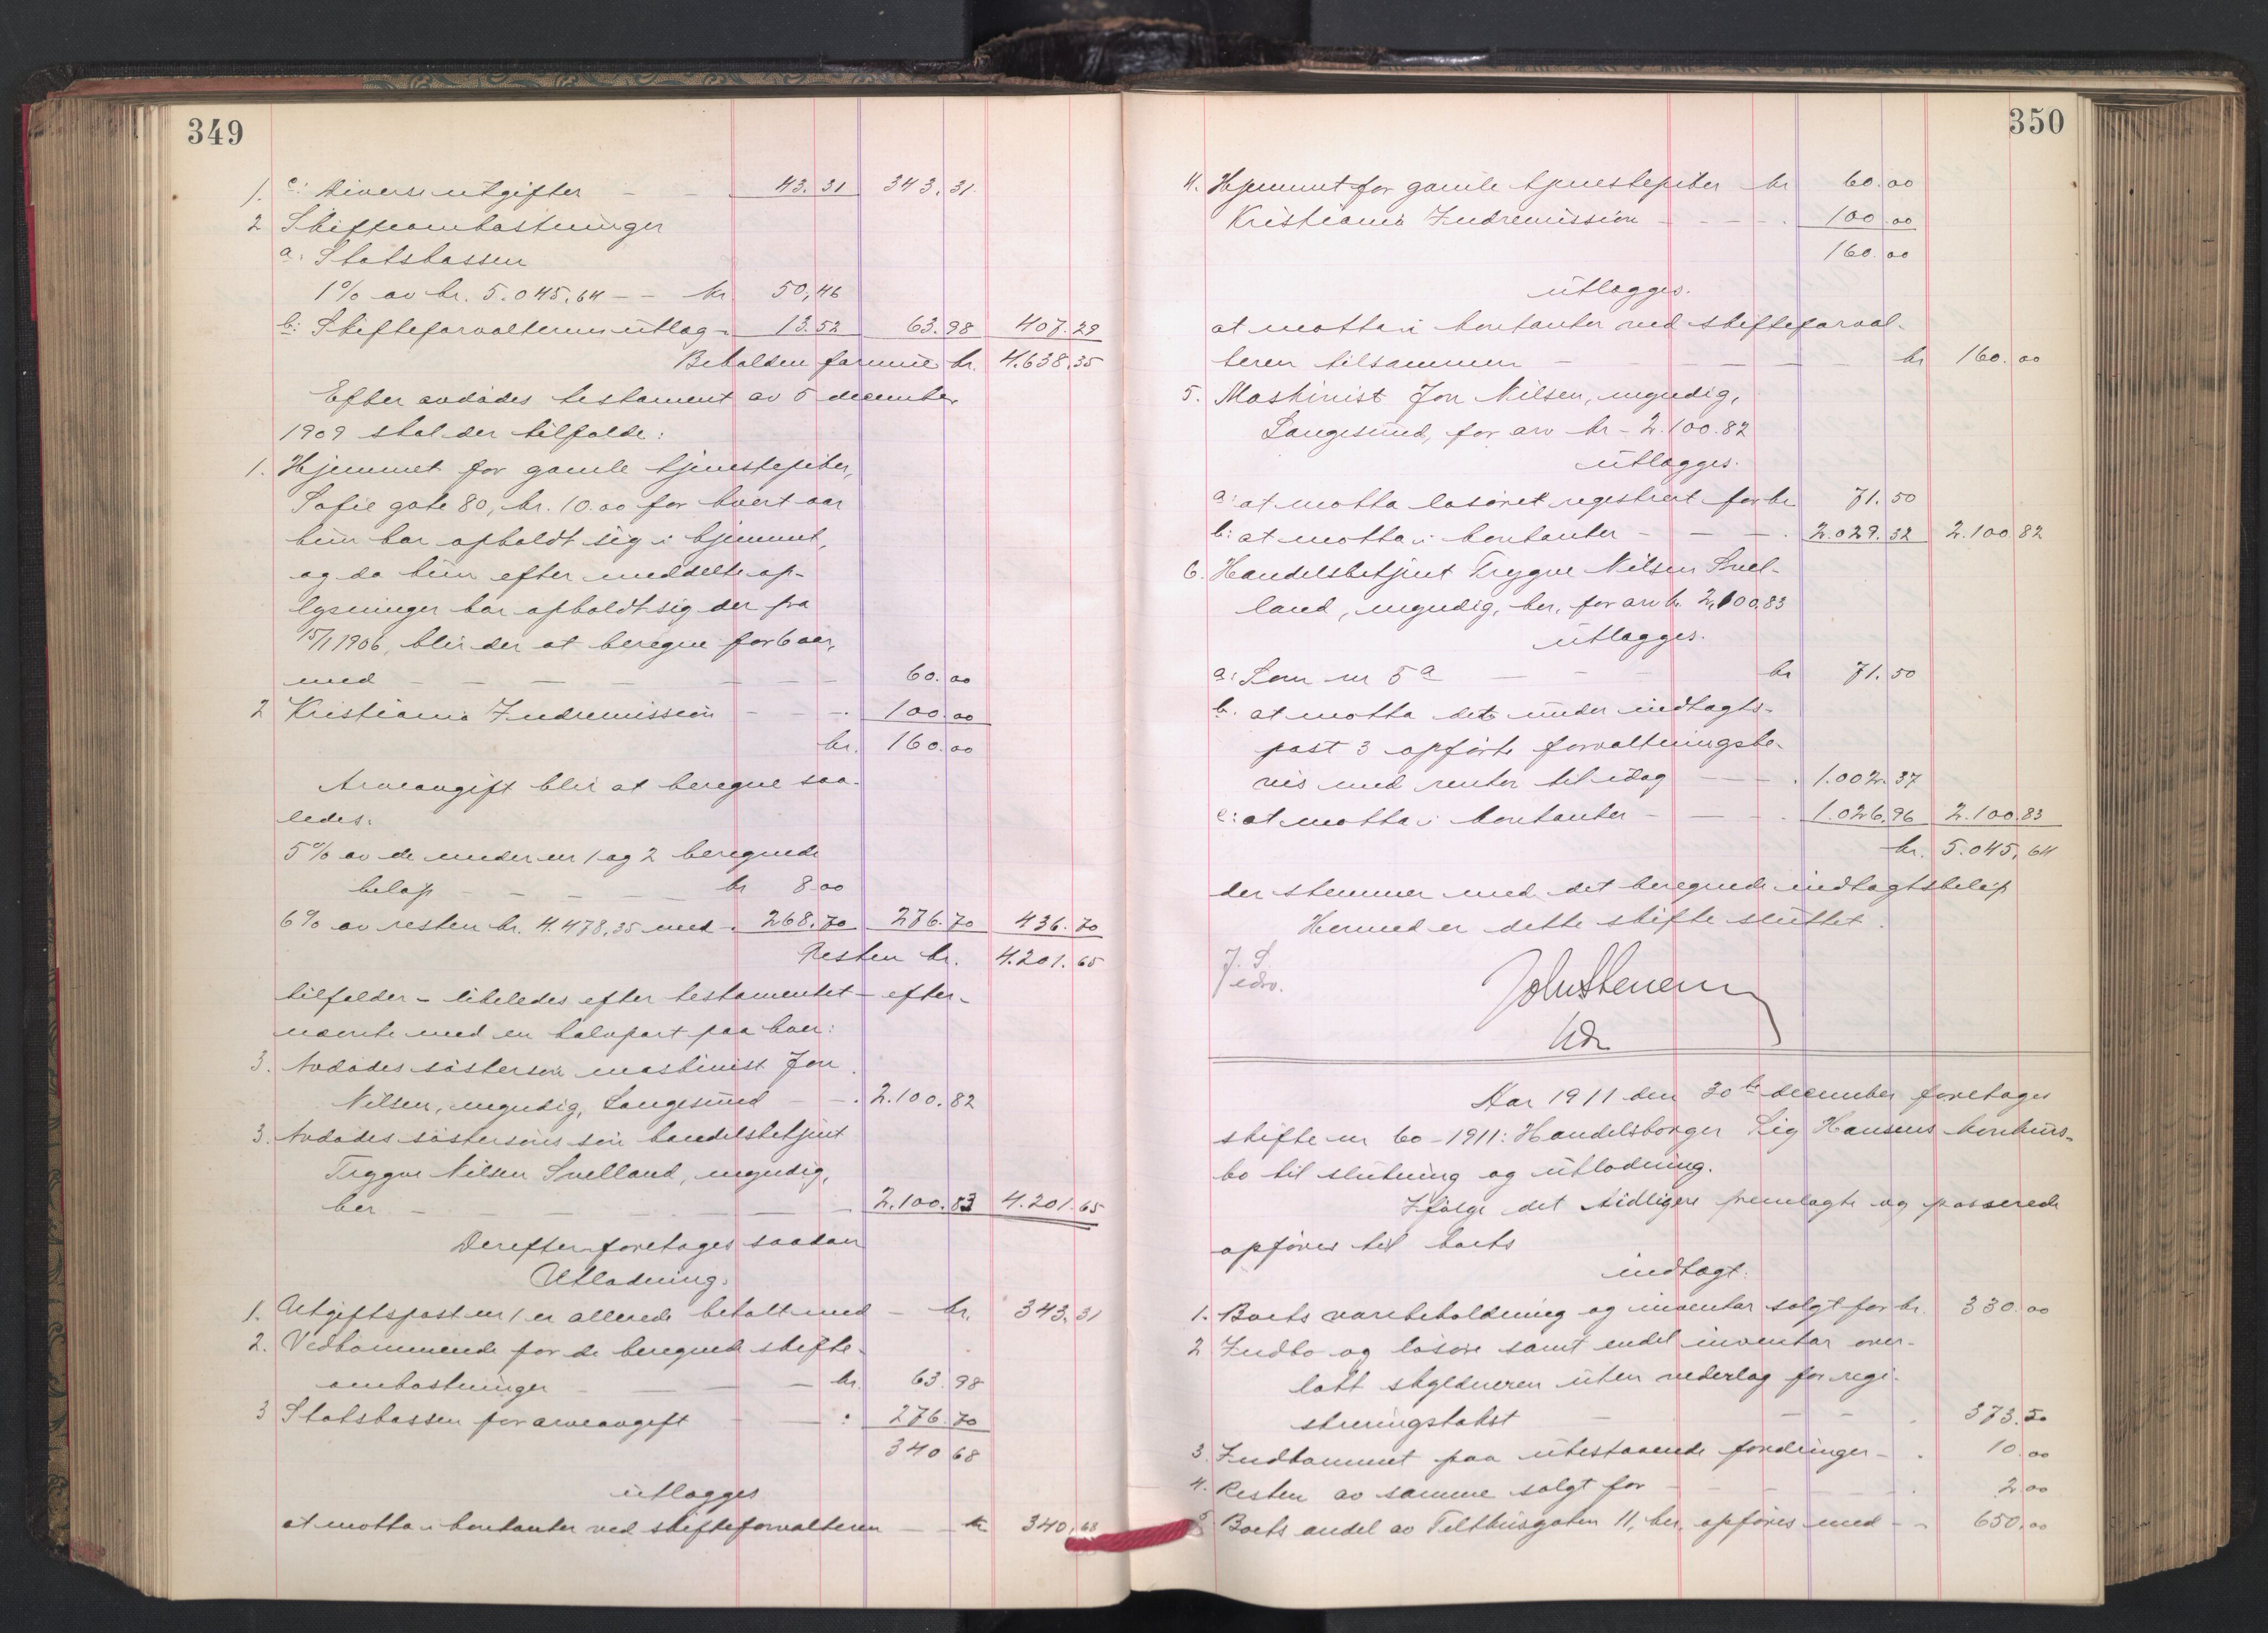 349
1. c: Diverse utgifter — — 43.31 343.31
2 Skifteomkostninger
a: Statskassen
1% av kr. 5.045.64 — — kr. 50,46
b: Skifteforvalterens utlæg - 13.52 63.98 407.29
Beholden formue kr. 4.638.35
Efter avdødes testament av 5 december
1909 skal der tilfalde:
1. Hjemmet for gamle tjenestepiker,
Sofie gate 80, kr. 10.00 for hvert aar
hun har opholdt sig i hjemmet,
og da hun efter meddelte op-
lysninger har opholdt sig der fra
15/1 1906, blir der at beregne for 6 aar,
med — — — — — — 60.00
2 Kristiania Indremission — — 100.00
kr. 160.00
Arveavgift blir at beregne saa-
ledes:
5% av de under nr 1 og 2 beregnede
beløp — — — — kr 8.00
6% av resten kr. 4.478,35 med - 268.70 276.70 436.70
Resten kr. 4.201.65
tilfalder – likeledes efter testamentet – efter-
nævnte med en halvpart paa hver:
3. Avdødes søstersøn maskinist Jon
Nilsen, myndig, Langesund — — . 2.100.82
3. Avdødes søstersøns søn handelsbetjent
Trygve Nilsen Snelland, myndig,
her — — — — — — 2.100.83 4.201.65
Derefter foretages saadan
Utlodning:
1. Utgiftspost nr 1 er allerede betalt med — kr. 343.31
2. Vedkommende for de beregnede skifte-
omkostninger — — — — kr. 63.98
3 Statskassen for arveavgift — — : 276.70
340.68
utlægges
at motta i kontanter ved skifteforvalteren — kr 340.68
350
4. Hjemmet for gamle tjenestepiker kr 60.00
Kristiania Indremission — — — . 100.00
160.00
utlægges.
at motta i kontanter ved skifteforval-
teren tilsammen — — — — — kr 160.00
5. Maskinist Jon Nilsen, myndig,
Langesund, for arv kr – 2.100.82
utlægges.
a: at motta løsøret registrert for kr. 71.50
b: at motta i kontanter — — — . 2.029.32 2.100.82
6. Handelsbetjent Trygve Nilsen Snel-
land, myndig, her, for arv kr. 2.100.83
utlægges.
a: Som nr 5a — — — kr 71.50
b. at motta det under indtægts-
post 3 opførte forvaltningsbe-
vis med renter til idag — — . 1.002.37
c: at motta i kontanter — — . 1.026.96 2.100.83
kr. 5.045.64
der stemmer med det beregnede indtægtsbeløp
Hermed er dette skifte sluttet.
Aar 1911 den 30te december foretages
skifte nr 60 – 1911: Handelsborger Sig Hansens konkurs-
bo til slutning og utlodning.
Ifølge det tidligere fremlagte og passerede
opføres til boets
indtægt:
1. Boets varebeholdning og inventar solgt for kr. 330.00
2 Indbo og løsøre samt endel inventar over-
latt skyldneren uten vederlag for regi-
streringstakst — — — . 373.50
3. Indkommet paa utestaaende fordringer — . 10.00
4. Resten av samme solgt for — — — . 2.00
5 Boets andel av Telthusgaten 11, her, opføres med - - 650.00